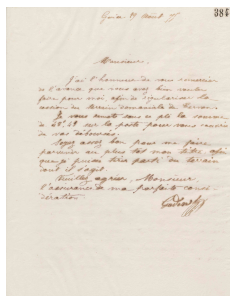 384
Guise 11 Août 85
Monsieur,
J'ai l'honneur de vous remercier
de l'avance que vous avez bien voulu
faire pour moi, afin de régulariser la
cession du terrain domanial de
Je vous envoie sous ce pli la somme
de sur la poste pour vous couvrir
de vos déboursés.
Soyez assez bon pour me faire
parvenir au plus tôt mon titre, afin
que je puisse tirer parti du terrain
dont il s'agit.
Veuillez agréer, Monsieur,
l'assurance de ma parfaite consi-
dération
Godin